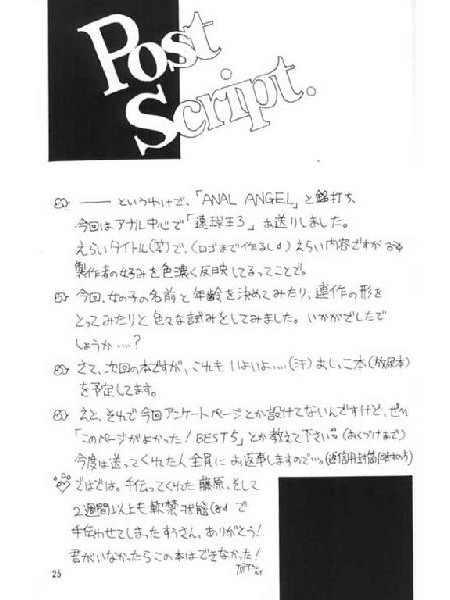 Post
Script.
――というわけで、「ANAL ANGEL」と銘打ち
今回はアナル中心で「速球王3」お送りしました。
えらいタイトル(笑)で、(ロゴまで作るし) えらい内容ですが
製作者の好みを色濃く反映してるってことで。
今回、女の子の名前と年齢を決めてみたり、連作の形を
とってみたりと色々な試みをしてみました。いかがでしたで
しょうか…?
さて、次回の本ですが、これもいよいよ…(汗)おしっこ本(放尿本)
を予定してます。
えと、それで今回アンケートページとか設けてないんですけど、ぜひ
「このページがよかった!BEST5」とか教えて下さい。(おくづけまで)
今度は送ってくれた人全員にお返事しますので…。(返信用封筒
ではでは。手伝ってくれた藤原、そして
2週間以上も軟禁状態 で
手伝わせてしまったすうさん、ありがとう!
君がいなかったらこの本はできなかった!
25